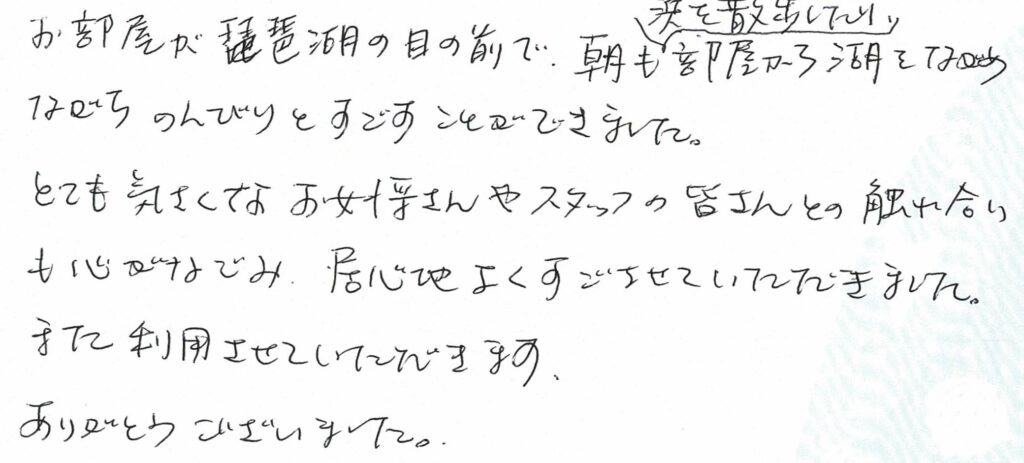 浜を散歩したり、
お部屋が琵琶湖の目の前で、朝も部屋から湖をながめ
ながらのんびりとすごすことができました。
とても気さくなお女将さんやスタッフの皆さんとの触れ合い
も心がなごみ、居心地よくすごさせていただきました。
また利用させていただきます。
ありがとうございました。